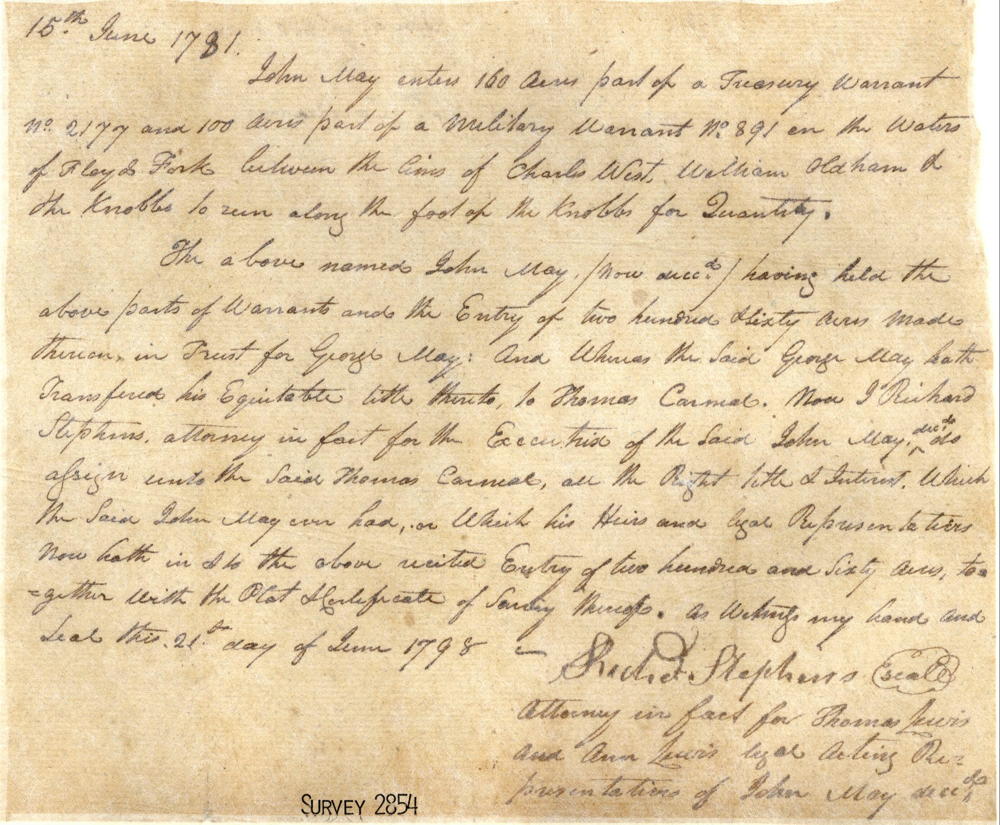 15th June 1781.
John May enters 160 Acres part of a Treasury Warrant
No. 2177 and 100 Acres part of a Military Warrant No. 891 on the Waters
of Floyds Fork between the lines of Charles West, William Oldham &
the Knobbs to run along the foot of the Knobbs for Quantity.
The above named John May, (now decd.) having held the
above parts of Warrants and the Entry of two hundred & sixty Acres made
thereon, in Trust for George May: And Whereas the Said George May hath
Transfered his Equitable title thereto, to Thomas Carmel. Now I Richard
Stephens, attorney in fact for the Executrix of the Said John May, decd. do
assign unto the Said Thomas Carmel, all the Right title & Interest, Which
the Said John May ever had, or Which his Heirs and legal Representatives
Now hath in & to the above recited Entry of two hundred and Sixty Acres, to=
=gether With the Plat & Certificate of Survey thereof. As Witness my hand and
Seal this 21st day of June 1798
Richd. Stephens (seal)
Attorney in fact for Thomas Lewis
and Ann Lewis legal Acting Re=
presentatives of John May decd.
SURVEY 2854